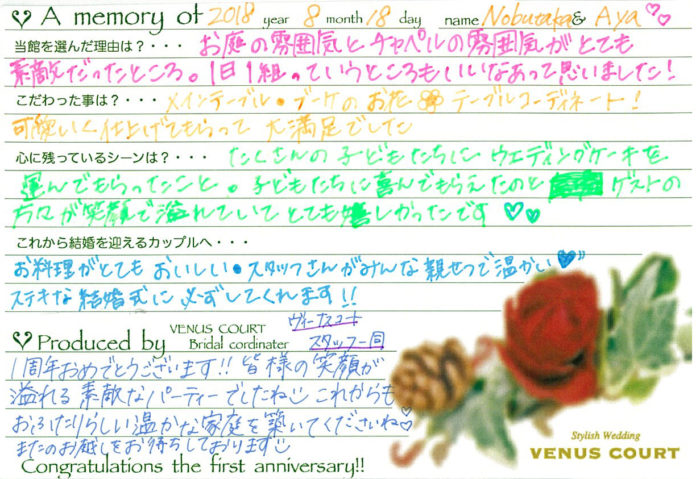 A memory of 2018 year 8 month 18 day name Nobutaka & Aya
当館を選んだ理由は？・・・ お庭の雰囲気とチャペルの雰囲気がとても
素敵だったところ。1日1組っていうところもいいなあって思いました！
こだわった事は？・・・ メインテーブル・ブーケのお花 テーブルコーディネート！
可愛いく仕上げてもらって 大満足でした
心に残っているシーンは？・・・ たくさんの子どもたちに ウエディングケーキを
運んでもらったこと。子どもたちに喜んでもらえたのと ゲストの
方々が笑顔で溢れていてとても嬉しかったです
これから結婚を迎えるカップルへ・・・
お料理がとても おいしい・スタッフさんがみんな親せつで温かい
ステキな結婚式に必ずしてくれます!!
Produced by VENUS COURT Bridal cordinater ヴィーナスコート スタッフ一同
1周年おめでとうございます!! 皆様の笑顔が
溢れる素敵なパーティーでしたね これからも
おふたりらしい温かな家庭を築いてくださいね
またのお越しをお待ちしております
Congratulations the first anniversary!!
Stylish Wedding
VENUS COURT